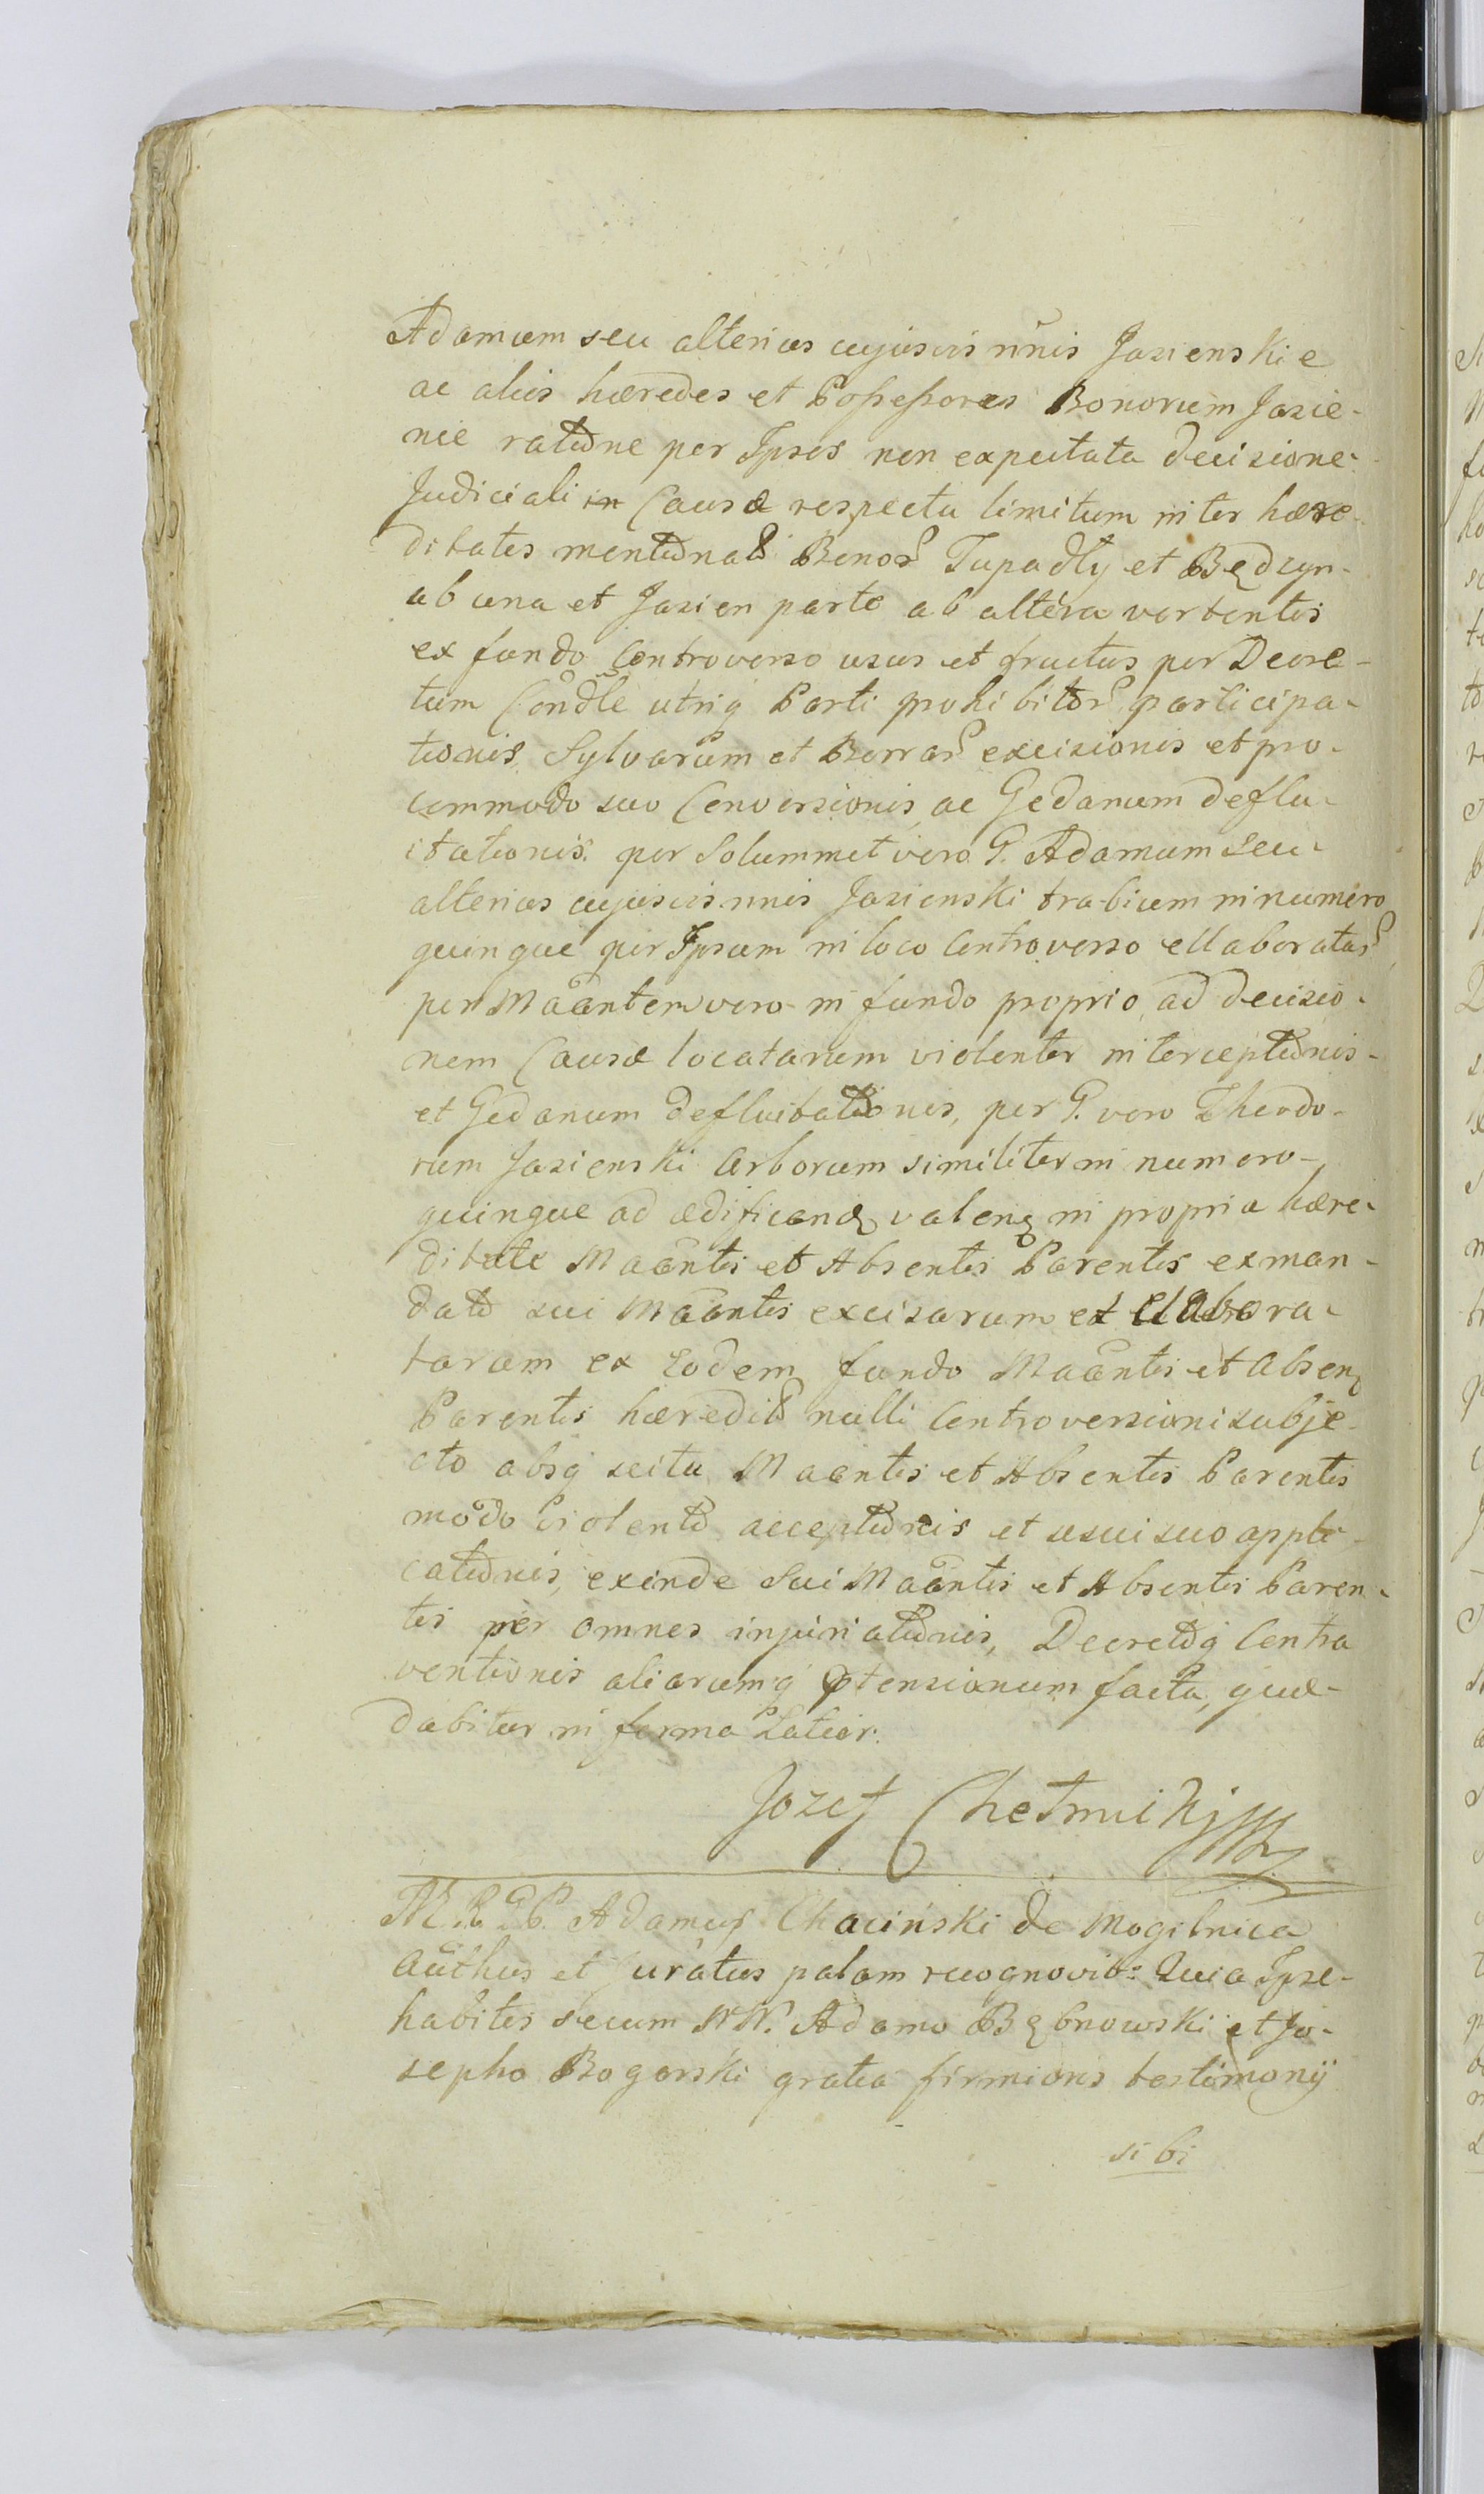 Adamum seu alterius cujusvis nnis Jasienskie
ac alios hæredes et Possessores Bonorum Jasie-
nie ratione per Ipsos non expectata decisione
Judiciali in Causa respectu limitum inter hære-
ditates mentionat Bonor Tupadły et Będzyn
ab una et Jasien parte ab altera vertentis
ex fundo Controverso usus et fructus per Decre-
tum Condle utriq Parti prohibitor participa-
tionis Sylvarum et Borrar excisionis et pro
commodo suo Conversionis, ac Gedanum deflu-
itationis. per Solummet vero G. Adamum seu
alterius cujusvis nnis Jasienski trabium in numero
quinque per Ipsum in loco Controverso ellaboratar
per Maantem vero in fundo proprio, ad decisio-
nem Causæ locatarum violenter interceptionis
et Gedanum defluitationis, per G. vero Theodo-
rum Jasienski Arborum similiter in numero
quinque ad ædificand valen in propria hære-
ditate Maantis et Absentis Parentis ex man-
dato sui Maantis excisarum et elabora-
tarum ex Eodem fundo Maantis et Absen
Parentis hæredit nulli Controversioni subje-
cto absq scitu Maantis et Absentis Parentis
modo violento acceptionis et usui suo appli-
cationis, exinde Sui Maantis et Absentis Paren-
tis per omnes injuriationis, Decretoq Contra
ventionis aliarumq ptensionum facta, quæ
dabitur in forma Latior.
Jozef Chełmicki
M. R. P. Adamus Chaciński de Mogilnica
Authus et Juratus palam recognovit: Quia Ipse
habitis secum NN. Adamo Bębnowski et Jo-
sepho Bogorski gratia firmioris testimonij
sibi